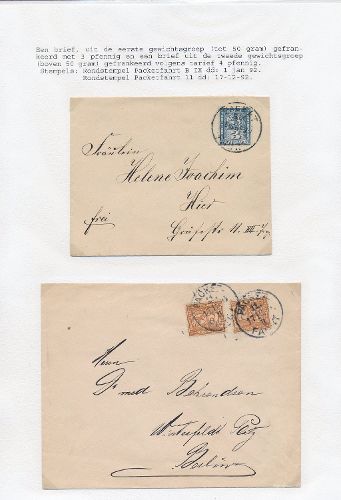 Een brief, uit de eerste gewichtsgroep (tot 50 gram) gefran-
keerd met 3 pfennig en een brief uit de tweede gewichtsgroep
(boven 50 gram) gefrankeerd volgens tarief 4 pfennig.
Stempels: Rondstempel Packetfahrt B IX dd: 1 jan 92.
Rondstempel Packetfahrt 11 dd: 17-12-92.
Fräulein
Helene Joachim
Hier
frei
Herrn
Dr med
Winterfeldt Pltz
Berlin